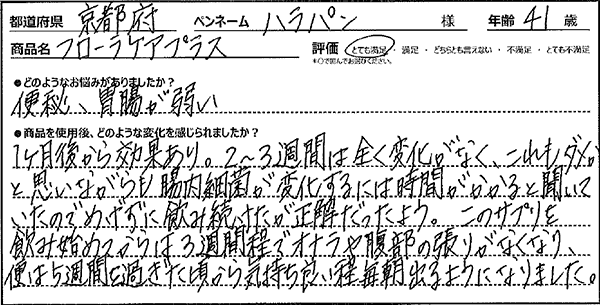 都道府県 京都府 ペンネーム ハラパン 様 年齢 41 歳
商品名 フローラケアプラス 評価 とても満足 ・ 満足 ・ どちらとも言えない ・ 不満足 ・ とても不満足
*○で囲んでお選びください。
●どのようなお悩みがありましたか？
便秘、胃腸が弱い
●商品を使用後、どのような変化を感じられましたか？
1ヶ月後から効果あり。2〜3週間は全く変化がなく、これもダメか
と思いながらも腸内細菌が変化するには時間がかかると聞いて
いたのでめげずに飲み続けたが正解だったよう。このサプリを
飲み始めてからは3週間程でオナラや腹部の張りがなくなり、
便は5週間を過ぎた頃から気持ち良い程毎朝出るようになりました。